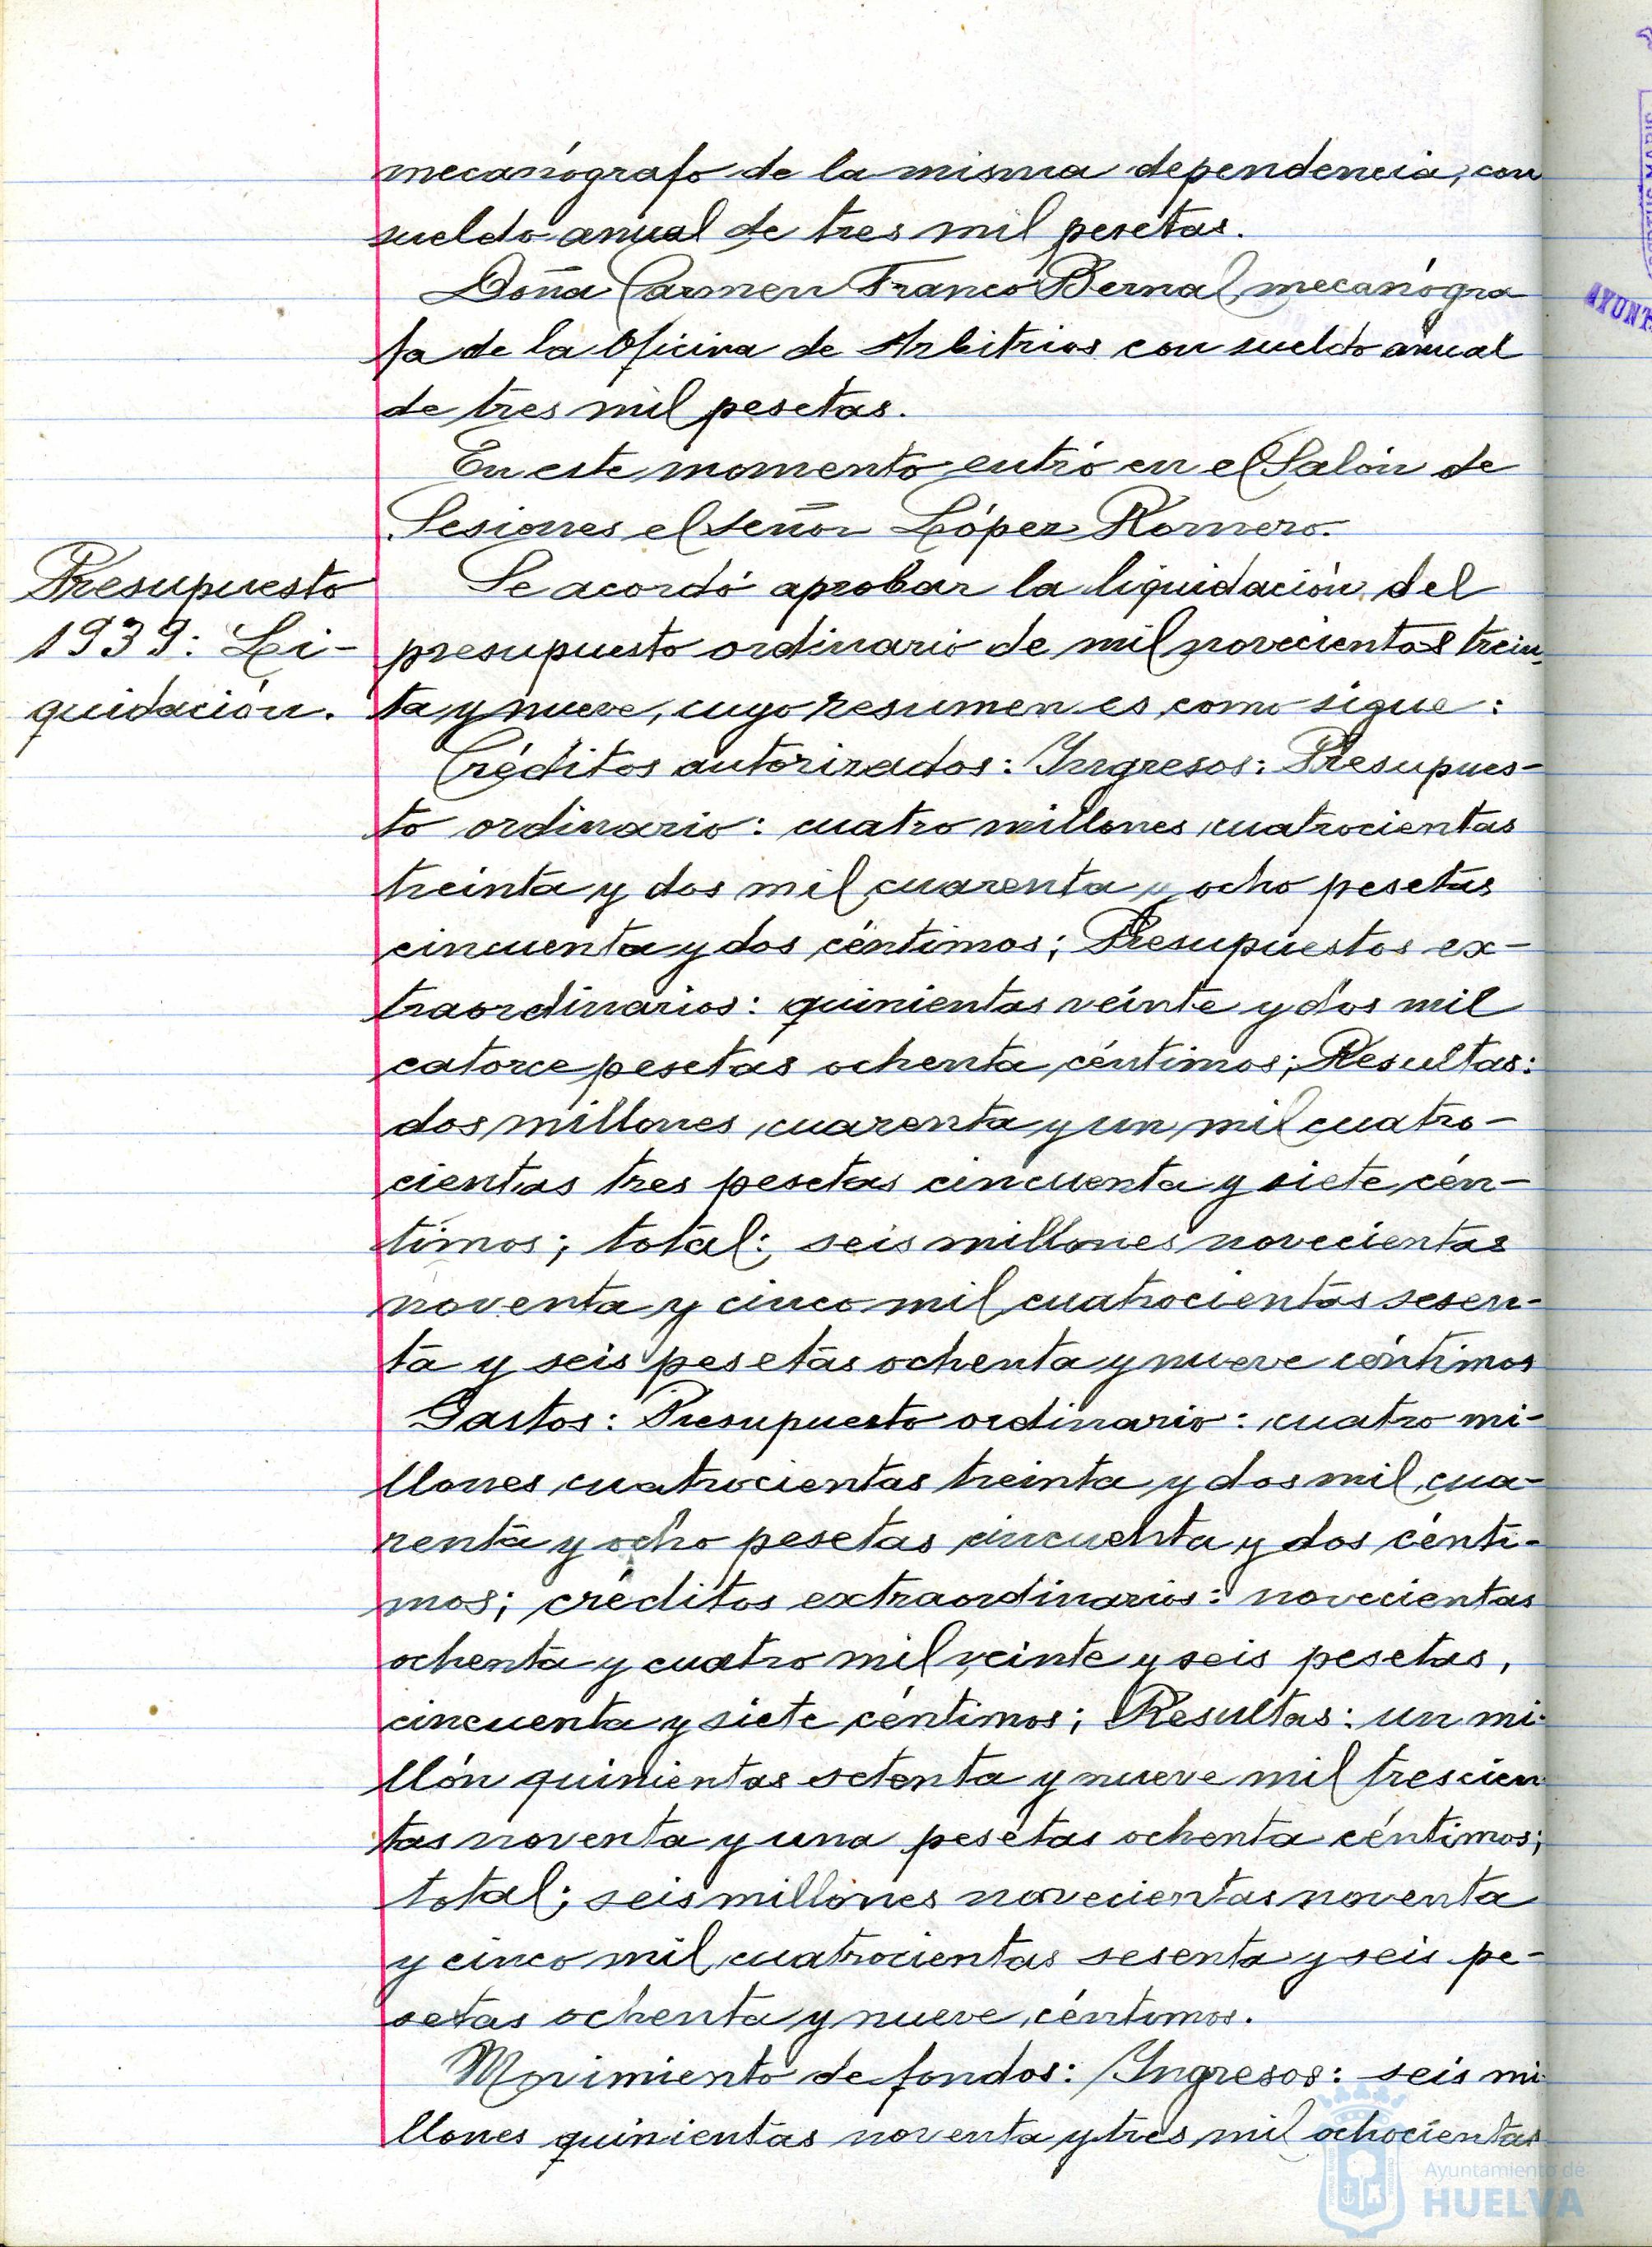 mecanógrafo de la misma dependencia, con
sueldo anual de tres mil pesetas.
Doña Carmen Franco Bernal, mecanógra
fa de la Oficina de Arbitrios con sueldo anual
de tres mil pesetas.
En este momento entró en el Salón de
Sesiones el señor López Romero.
Presupuesto
1939: Li-
quidación.
Se acordó aprobar la liquidación del
presupuesto ordinario de mil novecientos trein
ta y nueve, cuyo resumen es como sigue:
Créditos autorizados: Ingresos: Presupues-
to ordinario: cuatro millones cuatrocientas
treinta y dos mil cuarenta y ocho pesetas
cincuenta y dos céntimos; Presupuestos ex-
traordinarios: quinientas veinte y dos mil
catorce pesetas ochenta céntimos; Resultas:
dos millones cuarenta y un mil cuatro-
cientas tres pesetas cincuenta y siete cén-
timos; total: seis millones novecientas
noventa y cinco mil cuatrocientas sesen-
ta y seis pesetas ochenta y nueve céntimos
Gastos: Presupuesto ordinario: cuatro mi-
llones cuatrocientas treinta y dos mil cua-
renta y ocho pesetas cincuenta y dos cénti-
mos; créditos extraordinarios: novecientas
ochenta y cuatro mil veinte y seis pesetas,
cincuenta y siete céntimos; Resultas: un mi-
llón quinientas setenta y nueve mil trescien
tas noventa y una pesetas ochenta céntimos;
total; seis millones novecientas noventa
y cinco mil cuatrocientas sesenta y seis pe-
setas ochenta y nueve céntimos.
Movimiento de fondos: Ingresos: seis mi-
llones quinientas noventa y tres mil ochocientas
Ayuntamiento de
HUELVA
AYUNT